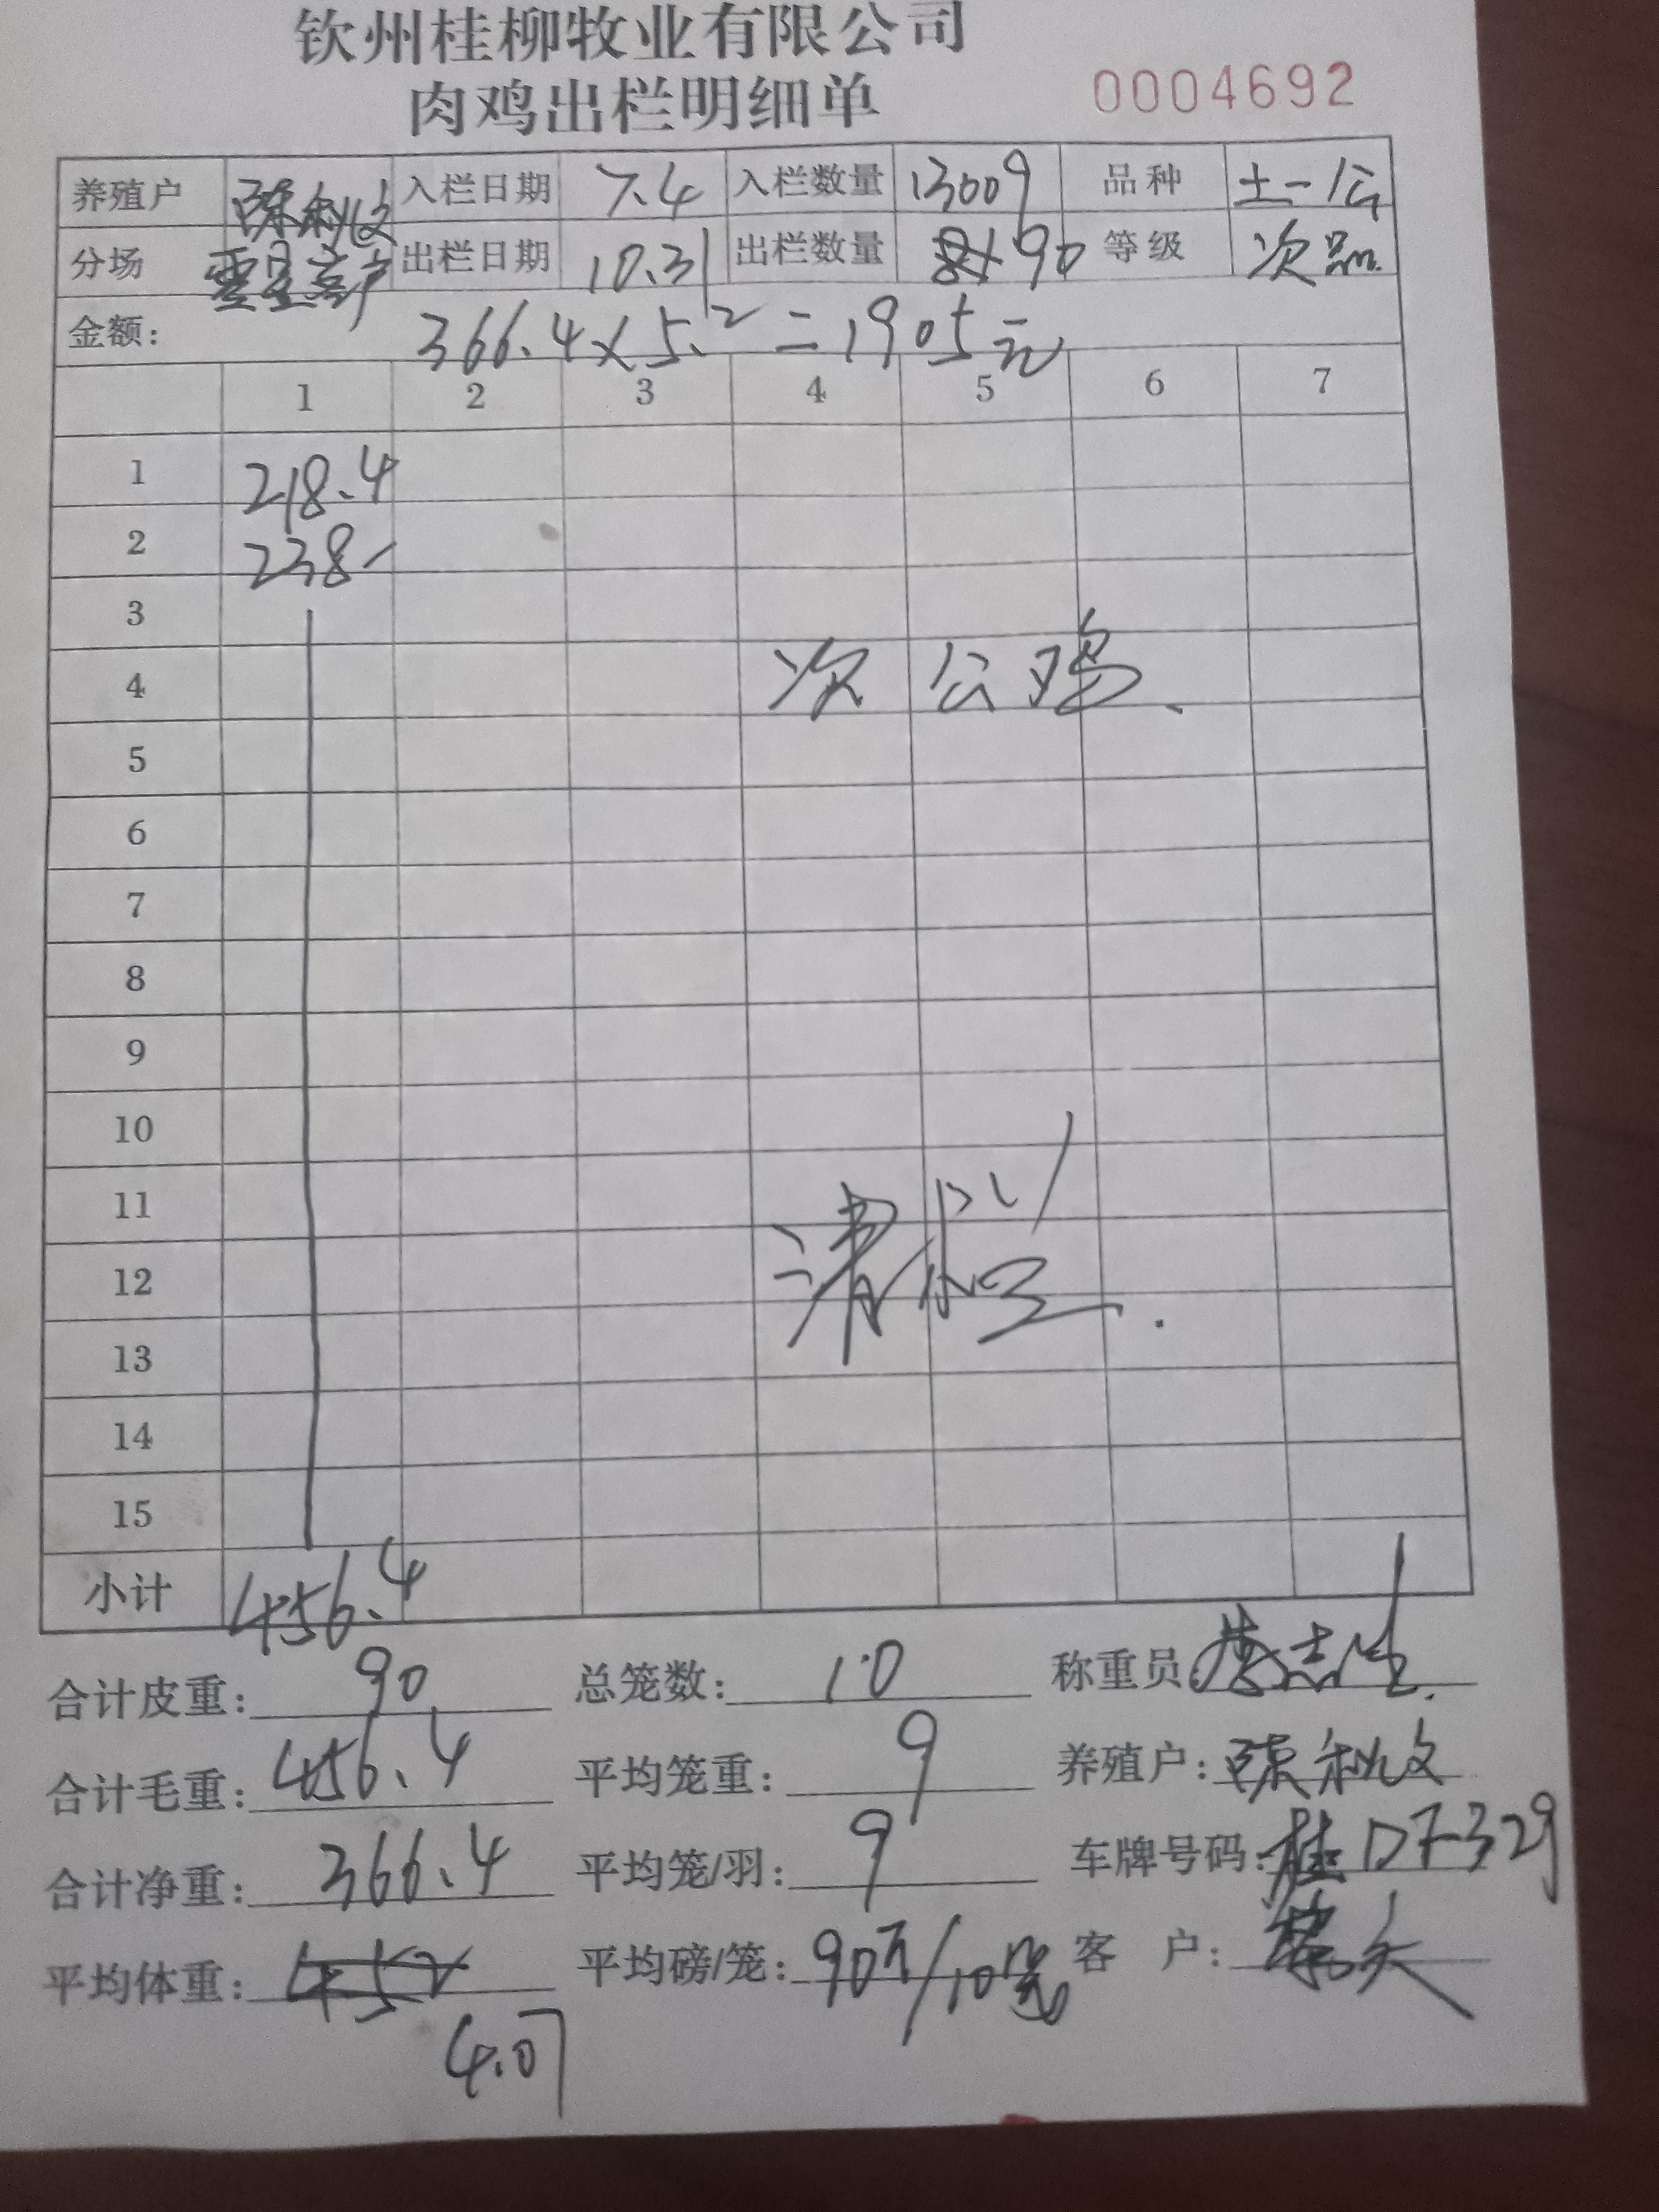 钦州桂柳牧业有限公司
肉鸡出栏明细单 0004692
养殖户 陈秋文 入栏日期 7.4 入栏数量 13009 品种 土一公
分场 出栏日期 10.31 出栏数量 90 等级 次品.
金额: 366.4×5.2=1905元
1 2 3 4 5 6 7
1 218.4
2 238-
3
4 次公鸡.
5
6
7
8
9
10
11
12 清栏.
13
14
15
小计 456.4
合计皮重: 90 总笼数: 10 称重员:
合计毛重: 456.4 平均笼重: 9 养殖户: 陈秋文
合计净重: 366.4 平均笼/羽: 9 车牌号码: 桂D7329
平均体重: 平均磅/笼: 90只/10笼 客 户:
4.07